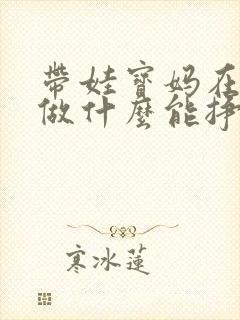 帶娃寶媽在
做什麼能掙
寒冰蓮